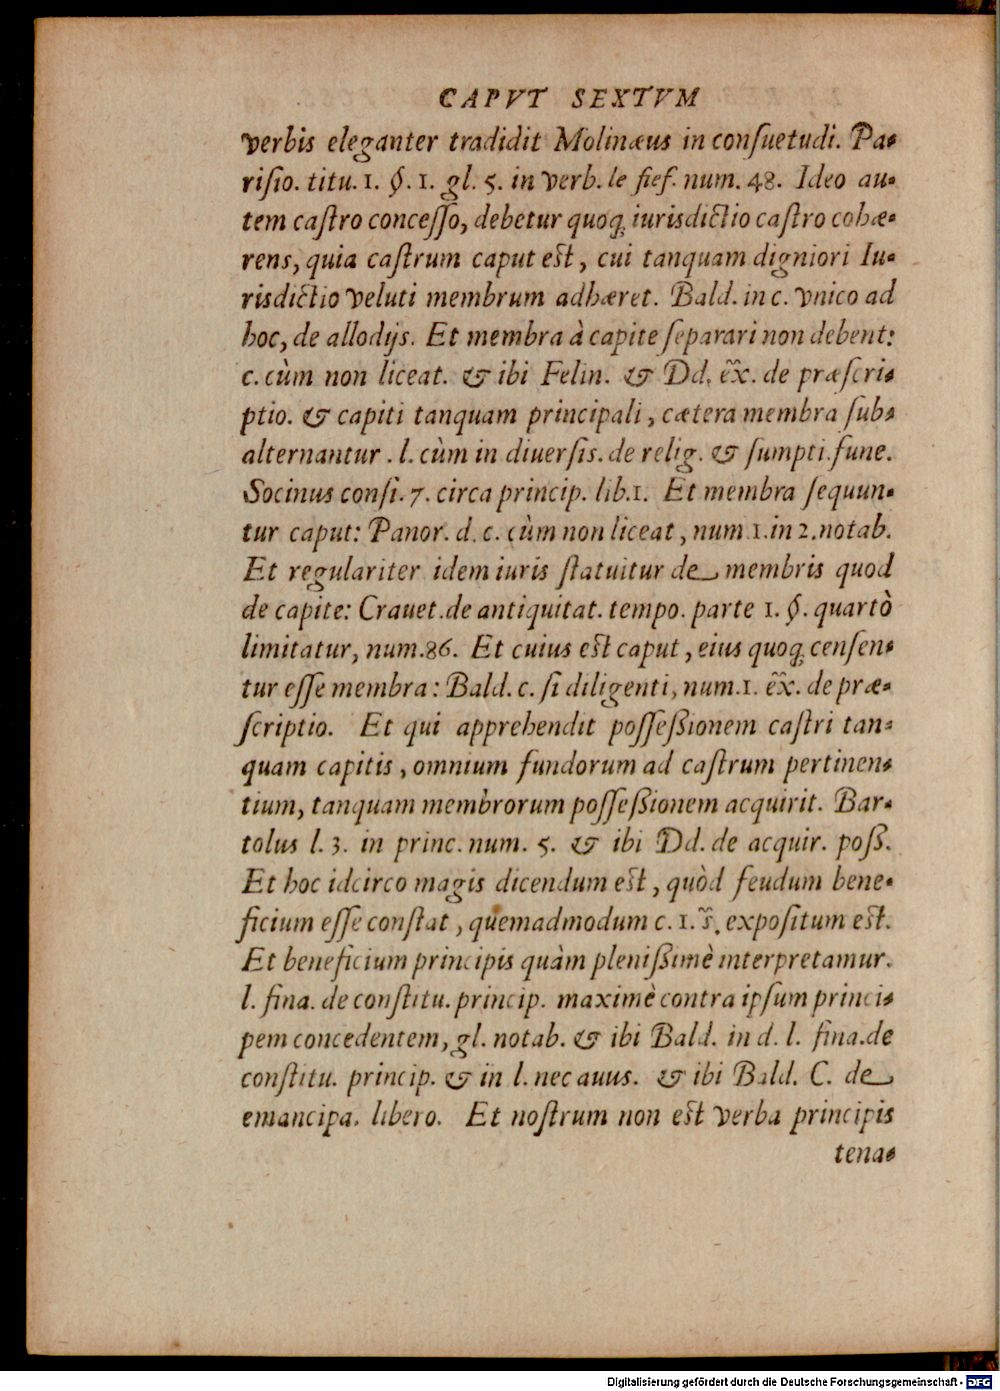 CAPVT SEXTVM
verbis eleganter tradidit Molinæus in conſuetudi. Pa-
riſio. titu. 1. §. 1. gl. 5. in verb. le fief. num. 48. Ideo au-
tem caſtro conceſſo, debetur quoq; iurisdictio caſtro cohæ-
rens, quia caſtrum caput eſt, cui tanquam digniori Iu-
risdictio veluti membrum adhæret. Bald. in c. vnico ad
hoc, de allodijs. Et membra à capite ſeparari non debent:
c. cùm non liceat. & ibi Felin. & Dd. ex̃. de præſcri-
ptio. & capiti tanquam principali, cætera membra ſub-
alternantur. l. cùm in diuerſis. de relig. & ſumpti. fune.
Socinus conſi. 7. circa princip. lib. 1. Et membra ſequun-
tur caput: Panor. d. c. cùm non liceat, num. 1. in 2. notab.
Et regulariter idem iuris ſtatuitur de membris quod
de capite: Crauet. de antiquitat. tempo. parte 1. §. quartò
limitatur, num. 86. Et cuius eſt caput, eius quoq; cenſen-
tur eſſe membra: Bald. c. ſi diligenti, num. 1. ex̃. de præ-
ſcriptio. Et qui apprehendit poſſeßionem caſtri tan-
quam capitis, omnium fundorum ad caſtrum pertinen-
tium, tanquam membrorum poſſeßionem acquirit. Bar-
tolus l. 3. in princ. num. 5. & ibi Dd. de acquir. poß.
Et hoc idcirco magis dicendum eſt, quòd feudum bene-
ficium eſſe conſtat, quemadmodum c. 1. s̃. expoſitum eſt.
Et beneficium principis quàm pleniſſimè interpretamur.
l. fina. de conſtitu. princip. maximè contra ipſum princi-
pem concedentem, gl. notab. & ibi Bald. in d. l. fina. de
conſtitu. princip. & in l. nec auus. & ibi Bald. C. de
emancipa. libero. Et noſtrum non eſt verba principis
tena-
Digitalisierung gefördert durch die Deutsche Forschungsgemeinschaft - DFG